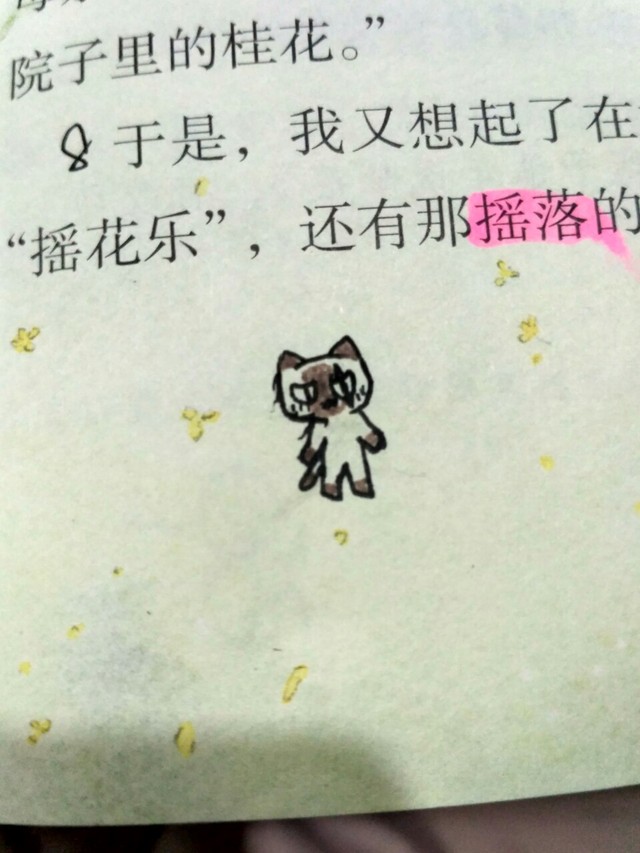 院子里的桂花。”
8 于是，我又想起了在
“摇花乐”，还有那摇落的